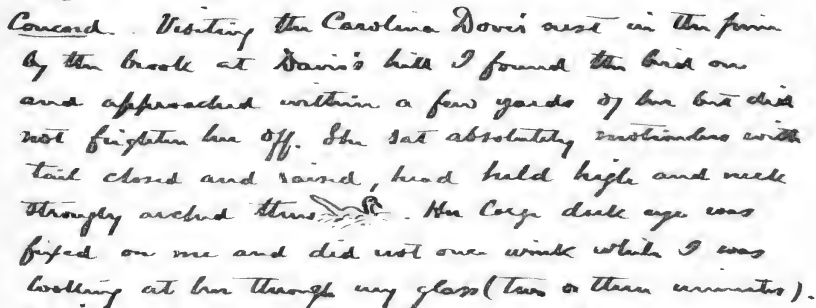 Concord. Visiting the Carolina Dove's nest in the pine
by the brook at Davis's hill I found the bird on
and approached within a few yards of her but did
not frighten her off. She sat absolutely motionless with
tail closed and raised, head held high and neck
strongly arched thus . Her large dark eye was
fixed on me and did not once wink while I was
looking at her through my glass (two or three minutes).